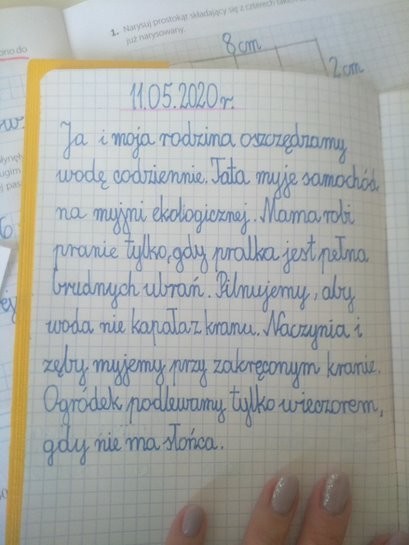 1. Narysuj prostokąt składający się z czterech
już narysowany.
8 cm
2 cm
11.05.2020 r.
Ja i moja rodzina oszczędzamy
wodę codziennie. Tata myje samochód
na myjni ekologicznej. Mama robi
pranie tylko, gdy pralka jest pełna
brudnych ubrań. Pilnujemy, aby
woda nie kapała z kranu. Naczynia i
zęby myjemy przy zakręconym kranie.
Ogródek podlewamy tylko wieczorem,
gdy nie ma słońca.